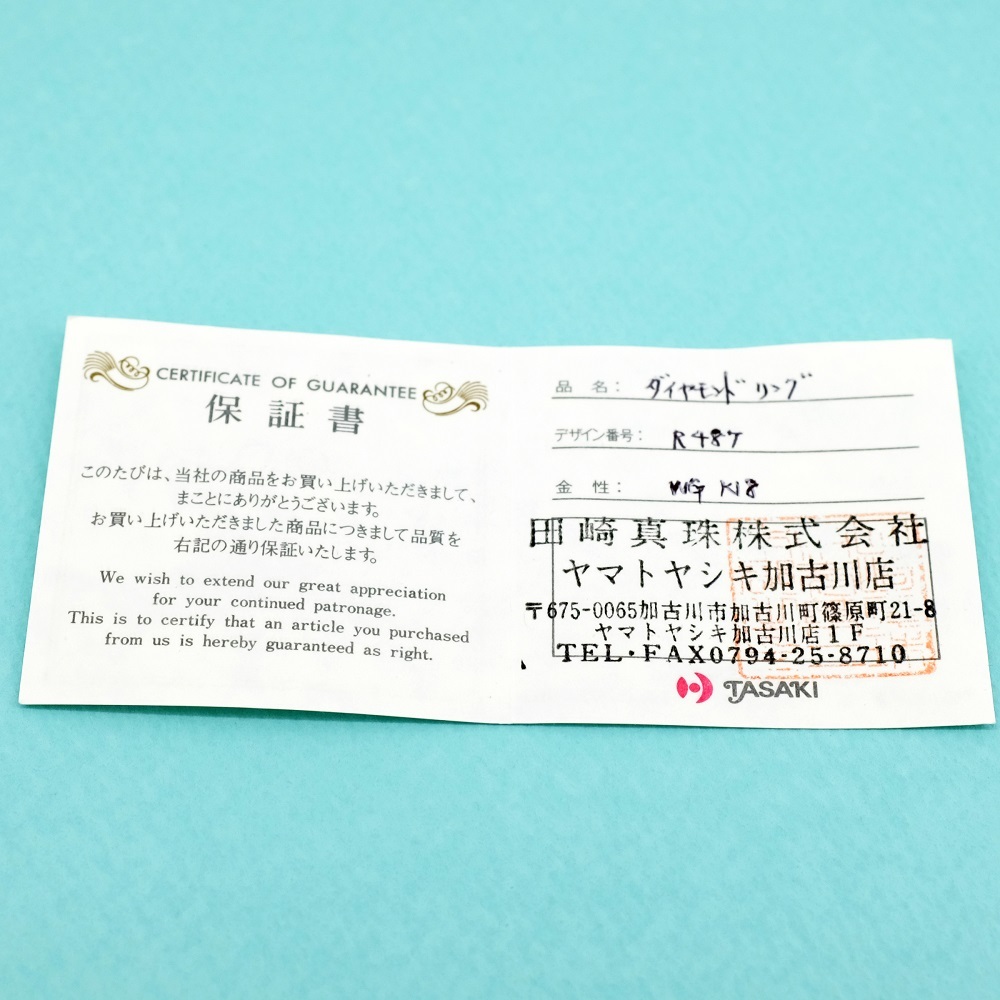 CERTIFICATE OF GUARANTEE
保証書
このたびは、当社の商品をお買い上げいただきまして、
まことにありがとうございます。
お買い上げいただきました商品につきまして品質を
右記の通り保証いたします。
We wish to extend our great appreciation
for your continued patronage.
This is to certify that an article you purchased
from us is hereby guaranteed as right.
品名: ダイヤモンドリング
デザイン番号:
金性: WG K18
田崎真珠株式会社
ヤマトヤシキ加古川店
〒675-0065加古川市加古川町篠原町21-8
ヤマトヤシキ加古川店1F
TEL・FAX0794-25-8710
TASAKI